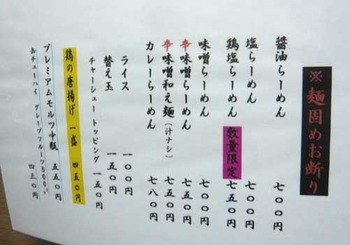 ※麺固めお断り
醤油らーめん 七〇〇円
塩らーめん 七〇〇円
鶏塩らーめん 数量限定 七五〇円
味噌らーめん 七〇〇円
辛味噌らーめん 七五〇円
辛味噌和え麺(汁ナシ) 七五〇円
カレーらーめん 七八〇円
ライス 一〇〇円
替え玉 一五〇円
チャーシュートッピング 一五〇円
鶏の唐揚げ 一盛 四五〇円
プレミアムモルツ中瓶 五五〇円
缶チューハイ グレープフルーツ 四五〇円